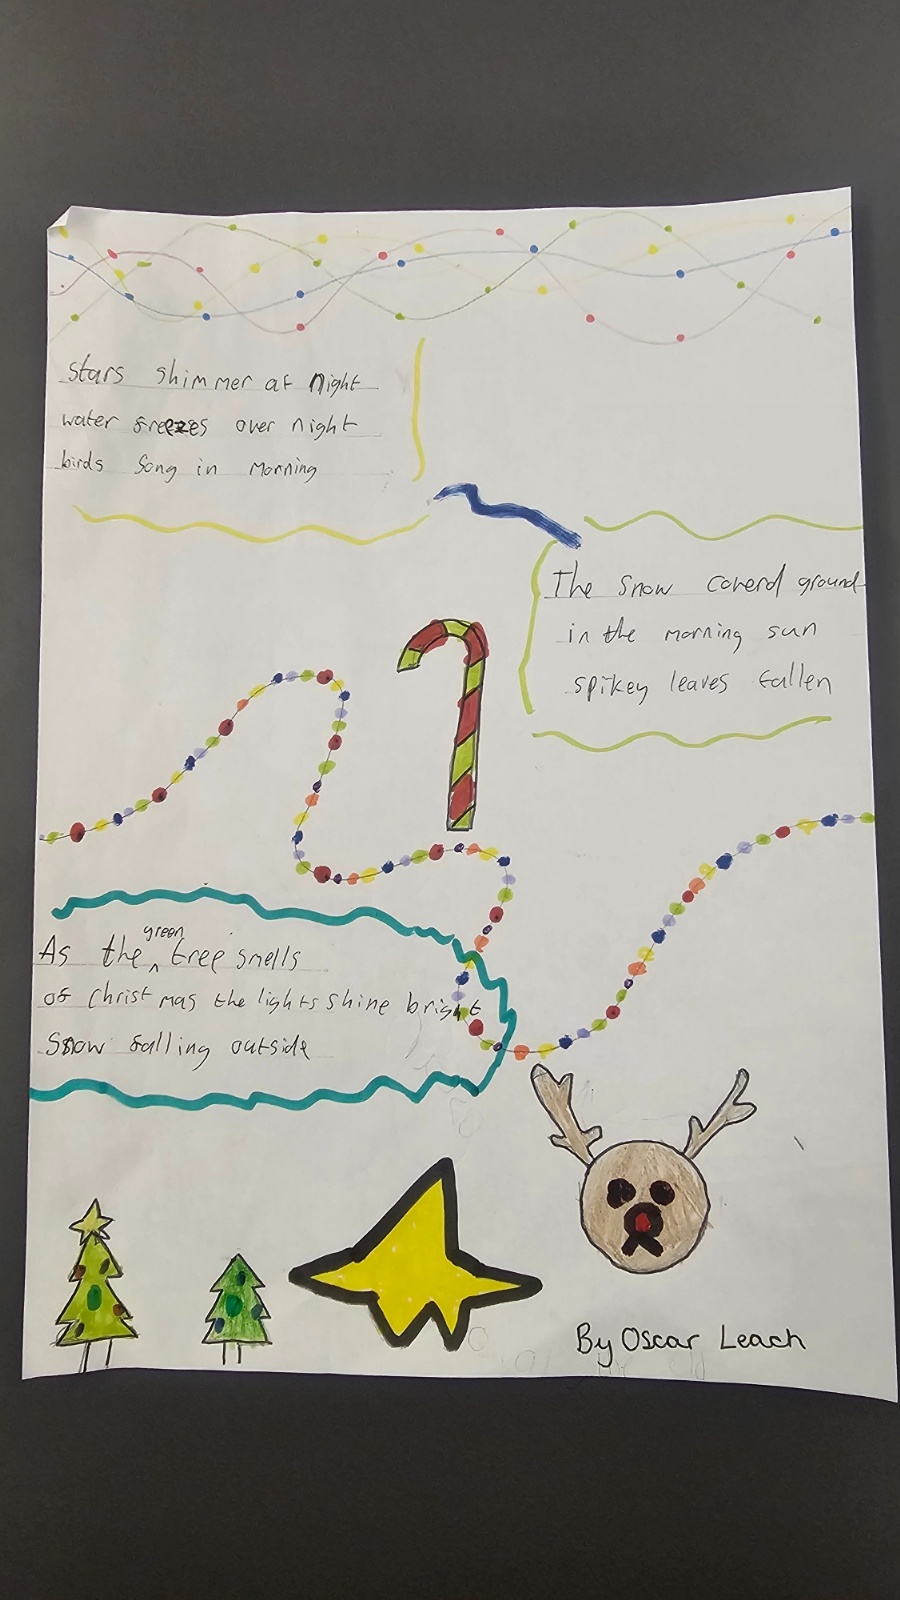 stars shimmer at night
water freezes over night
birds song in morning
The snow coverd ground
in the morning sun
spikey leaves fallen
As the green tree smells
of Christmas the lights shine bright
Snow falling outside
By Oscar Leach